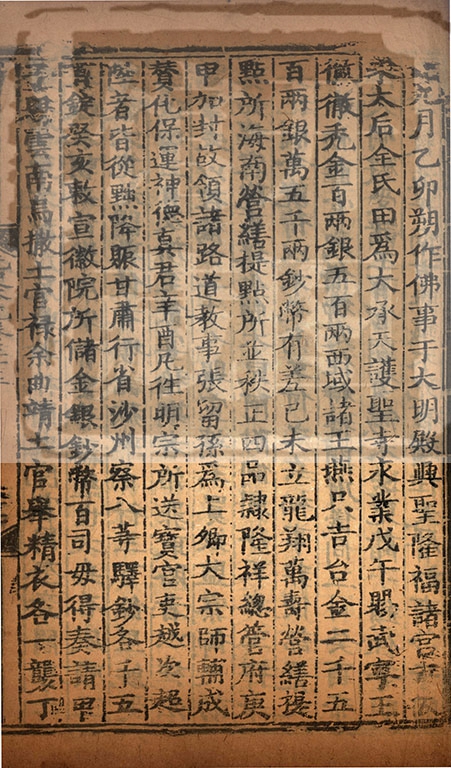 九月乙卯朔作佛事于大明殿興聖隆福諸宮
宋太后全氏田爲大承天護聖寺永業戊午賜武寧王
徹徹禿金百兩銀五百兩西域諸王燕只吉台金二千五
百兩銀萬五千兩鈔幣有差己未立龍翔萬壽營繕提
點所海南營繕提點所並秩正四品隸隆祥總管府庚
甲加封故領諸路道教事張留孫爲上卿大宗師輔成
贊化保運神德真君辛酉凡往明宗所送寶官吏越次超
陞者皆從黜降賑甘肅行省沙州察八等驛鈔各千五
百錠癸亥敕宣徽院所儲金銀鈔幣百司毋得奏請甲
子賜雲南烏撒土官禄余曲靖土官舉精衣各一襲丁